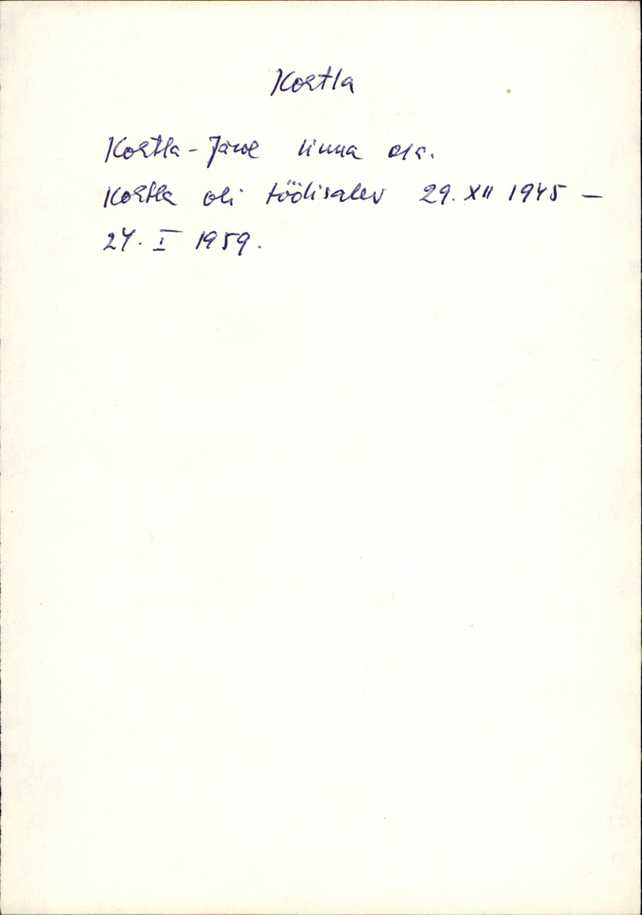 Kohtla
Kohtla-Järve linna osa.
Kohtla oli töölisalev 29. XII 1945 –
24. I 1959.